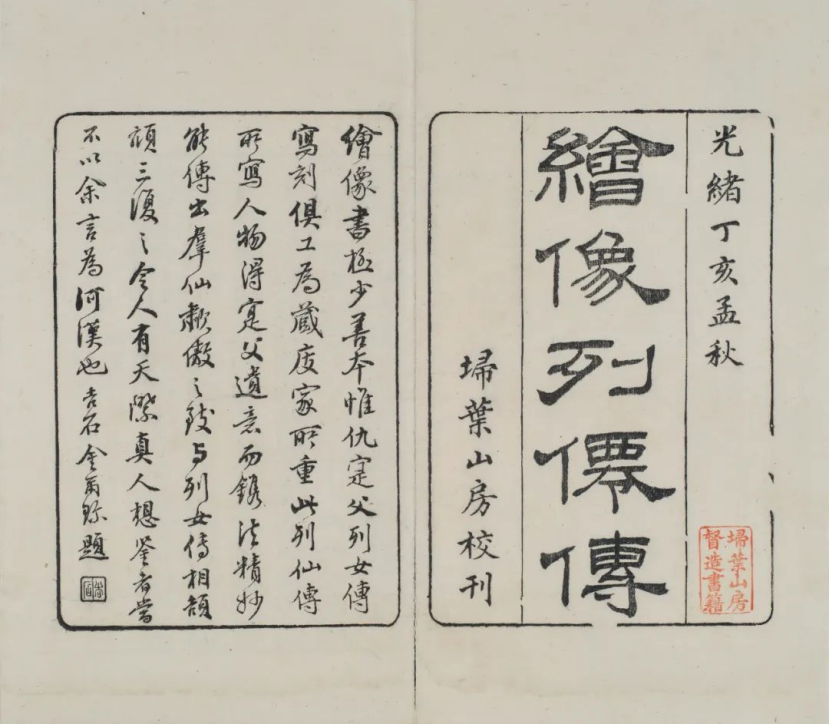 光緒丁亥孟秋
埽葉山房
督造書籍
繪像列僊傳
埽葉山房校刊
繪像書極少善本惟仇寔父列女傳
寫刻俱工為蔵庋家所重此列仙傳
所寫人物得寔父遺意而鐫法精妙
能傳出羣仙歗傲之致与列女傳相頡
頏三復之令人有天際真人想鉴者當
不以余言為河漢也吉石金爾珍題